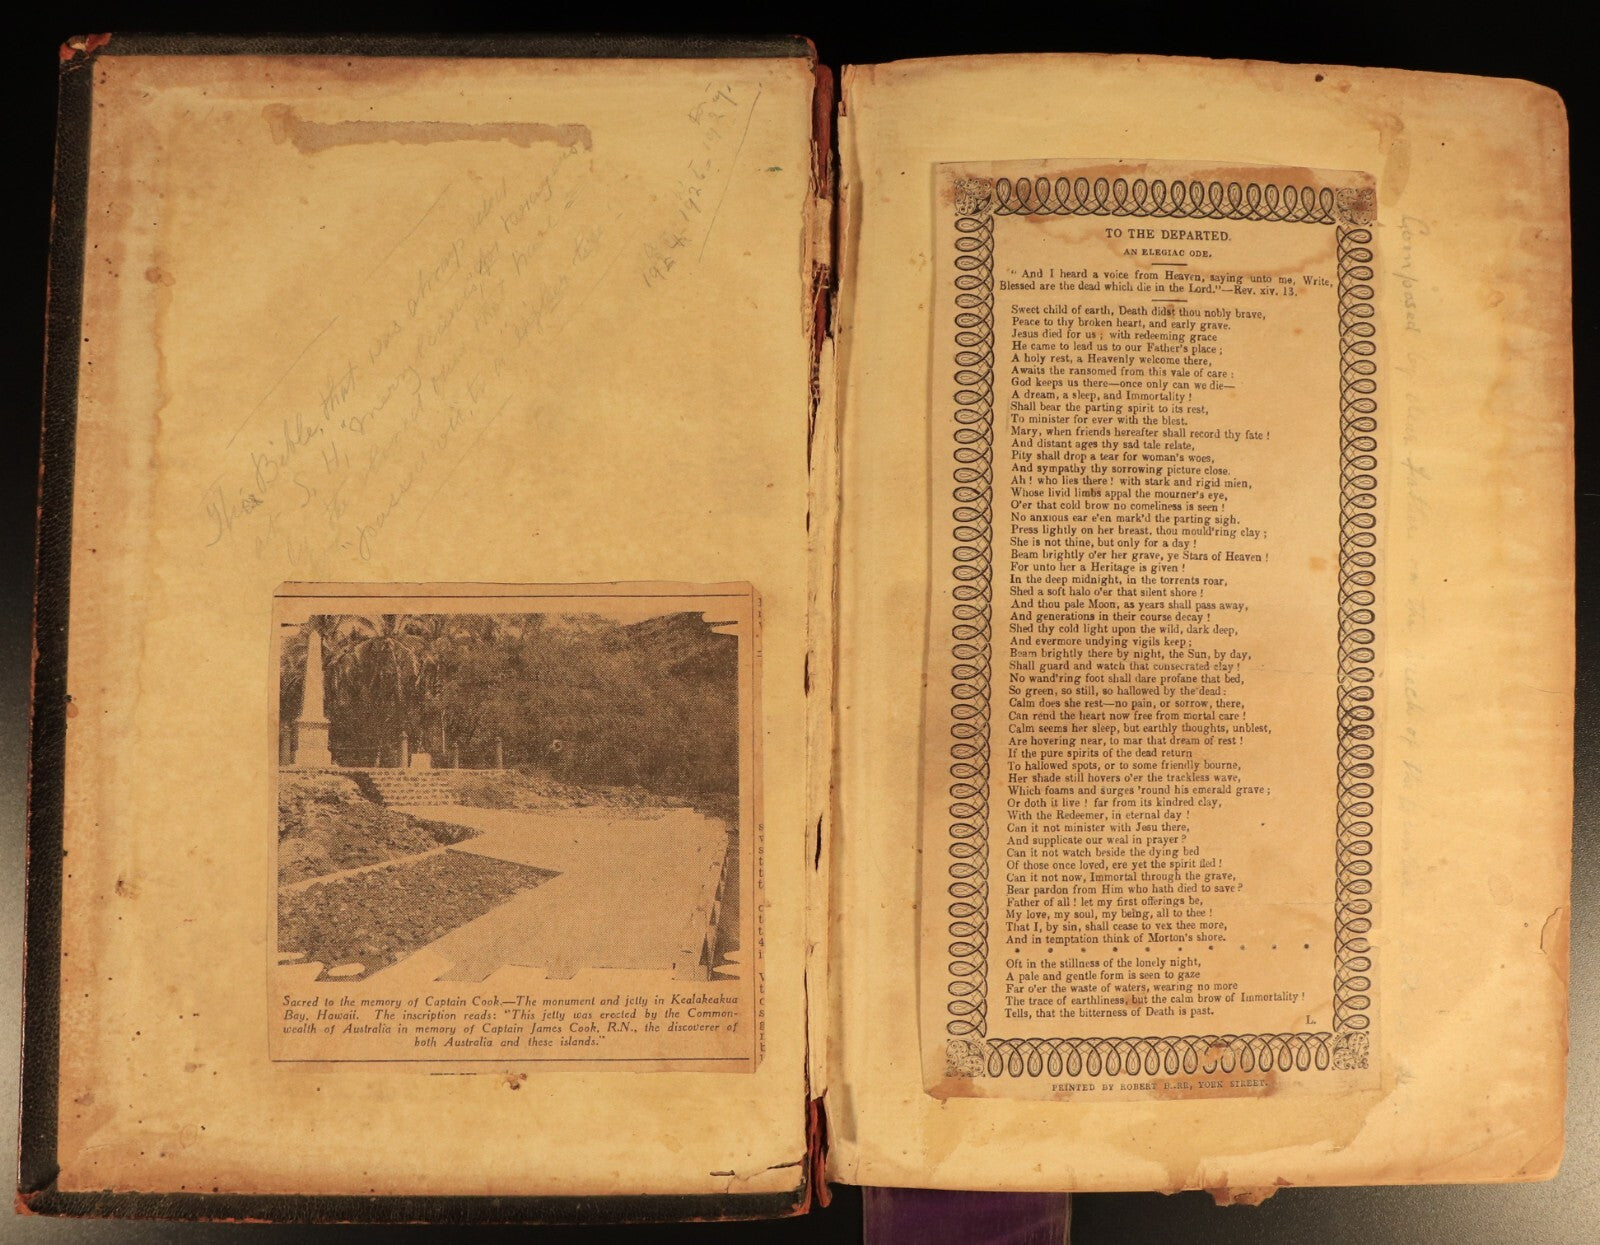 This Bible, that was
S. H.
1924. 1926-1927.
Sacred to the memory of Captain Cook.—The monument and jetty in Kealakeakua
Bay, Hawaii. The inscription reads: "This jetty was erected by the Common-
wealth of Australia in memory of Captain James Cook, R.N., the discoverer of
both Australia and these islands."
TO THE DEPARTED.
AN ELEGIAC ODE.
" And I heard a voice from Heaven, saying unto me, Write,
Blessed are the dead which die in the Lord."—Rev. xiv. 13.
Sweet child of earth, Death didst thou nobly brave,
Peace to thy broken heart, and early grave.
Jesus died for us ; with redeeming grace
He came to lead us to our Father's place ;
A holy rest, a Heavenly welcome there,
Awaits the ransomed from this vale of care :
God keeps us there—once only can we die—
A dream, a sleep, and Immortality !
Shall bear the parting spirit to its rest,
To minister for ever with the blest.
Mary, when friends hereafter shall record thy fate !
And distant ages thy sad tale relate,
Pity shall drop a tear for woman's woes,
And sympathy thy sorrowing picture close.
Ah ! who lies there ! with stark and rigid mien,
Whose livid limbs appal the mourner's eye,
O'er that cold brow no comeliness is seen !
No anxious ear e'en mark'd the parting sigh.
Press lightly on her breast, thou mould'ring clay ;
She is not thine, but only for a day !
Beam brightly o'er her grave, ye Stars of Heaven !
For unto her a Heritage is given !
In the deep midnight, in the torrents roar,
Shed a soft halo o'er that silent shore !
And thou pale Moon, as years shall pass away,
And generations in their course decay !
Shed thy cold light upon the wild, dark deep,
And evermore undying vigils keep;
Beam brightly there by night, the Sun, by day,
Shall guard and watch that consecrated clay !
No wand'ring foot shall dare profane that bed,
So green, so still, so hallowed by the dead:
Calm does she rest—no pain, or sorrow, there,
Can rend the heart now free from mortal care !
Calm seems her sleep, but earthly thoughts, unblest,
Are hovering near, to mar that dream of rest !
If the pure spirits of the dead return
To hallowed spots, or to some friendly bourne,
Her shade still hovers o'er the trackless wave,
Which foams and surges 'round his emerald grave ;
Or doth it live ! far from its kindred clay,
With the Redeemer, in eternal day !
Can it not minister with Jesu there,
And supplicate our weal in prayer ?
Can it not watch beside the dying bed
Of those once loved, ere yet the spirit fled !
Can it not now, Immortal through the grave,
Bear pardon from Him who hath died to save ?
Father of all ! let my first offerings be,
My love, my soul, my being, all to thee !
That I, by sin, shall cease to vex thee more,
And in temptation think of Morton's shore.
* * * * * * * * * *
Oft in the stillness of the lonely night,
A pale and gentle form is seen to gaze
Far o'er the waste of waters, wearing no more
The trace of earthliness, but the calm brow of Immortality !
Tells, that the bitterness of Death is past.
L.
PRINTED BY ROBERT YORK STREET.
Composed